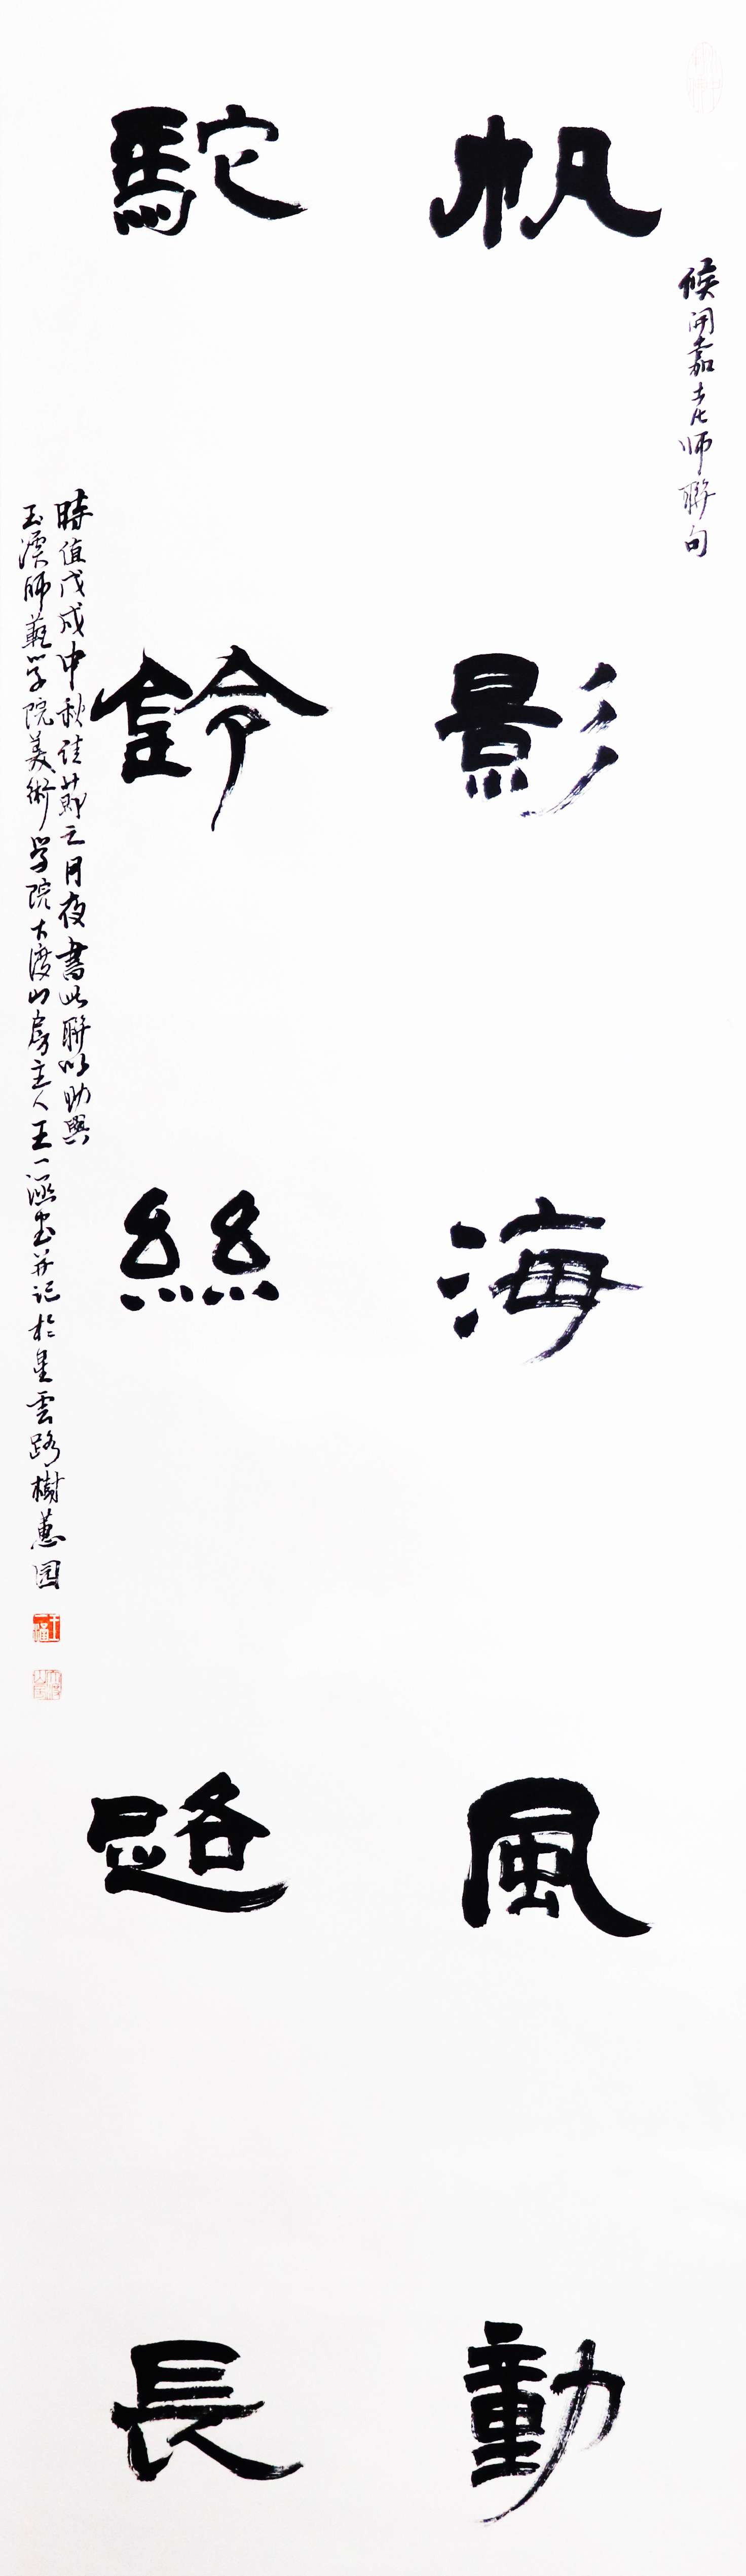 帆影海風動
候開嘉老師聯句
駝鈴絲路長
時值戊戌中秋佳節之月夜書此聯以助興
玉溪師範學院美術學院大渡山房主人王一涵書并記於星雲路樹蕙園